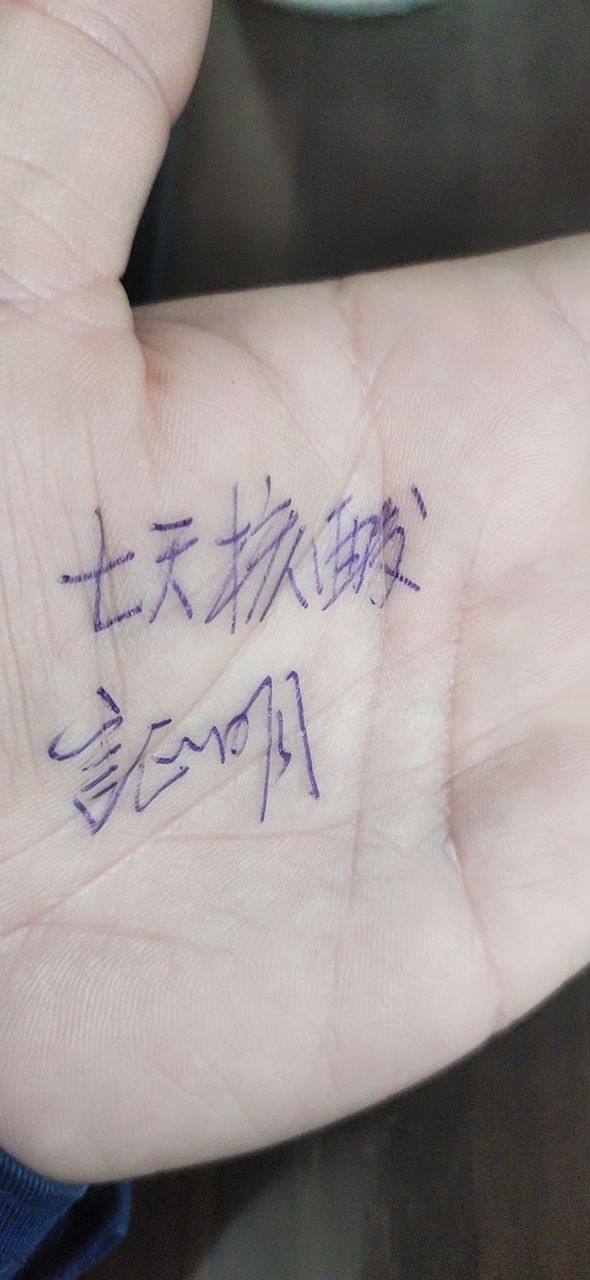 七天核酸
証明